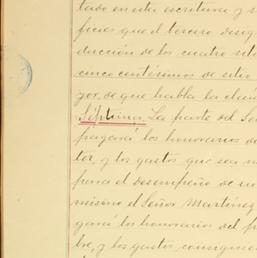 tado en esta escritura y s
fieres que el tercero desig
ducción de los cuatro sete
cinco centésimos de sitio
yor, de que habla la cláu
Séptima. La parte del Se
pagará los honorarios de
tor, y los gastos que sea n
para el desempeño de su
mismo el Señor Martínez
gará los honorarios del p
bre, y los gastos consigue